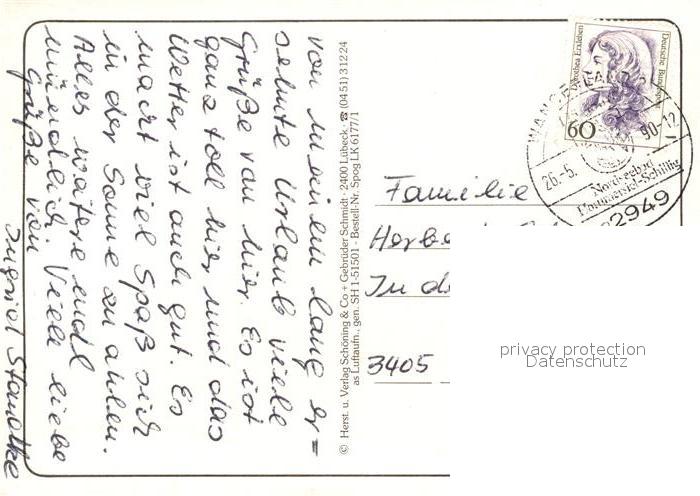 von meinem lang er=
sehnte Urlaub viele
Grüße von hier. Es ist
ganz toll hier und das
Wetter ist auch gut. Es
macht viel Spaß sich
in der Sonne zu ahlen.
Alles weitere mal
mündlich. Viele liebe
Grüße von
Ingrid
© Herst. u. Verlag Schöning & Co + Gebrüder Schmidt · 2400 Lübeck · ☎ (0451) 31224
als Luftaufn., gen. SH 1-51501 - Bestell-Nr. Spog LK 6177/1
Dorothea Erxleben
Deutsche Bundes
60
WANGERLAND
26.-5. 90-12
Nordseebad
Hooksiel-Schillig
2949
Familie
Herbe
In d
3405
privacy protection
Datenschutz